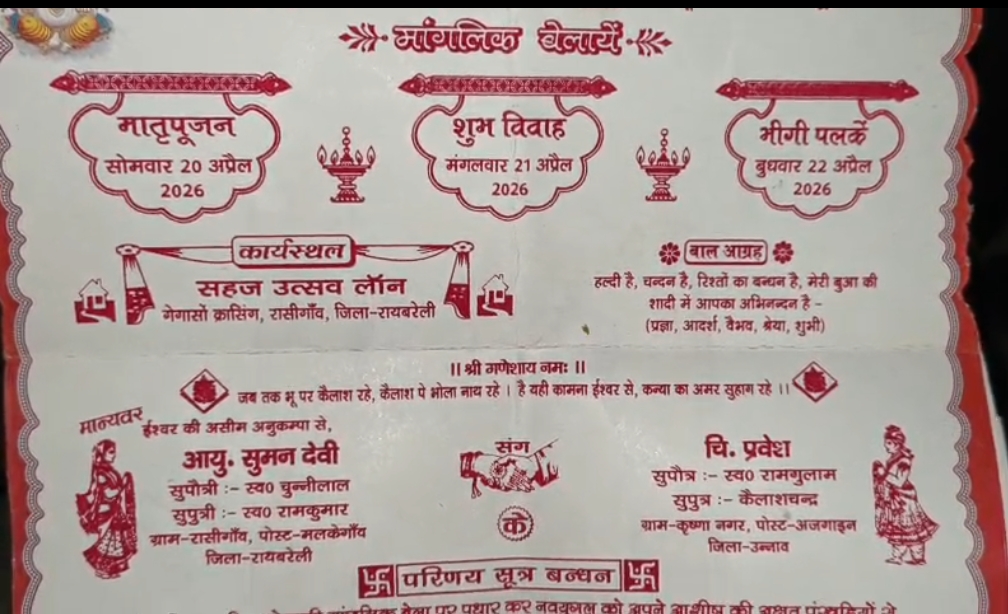 मांगलिक बेलायें
मातृपूजन
सोमवार 20 अप्रैल
2026
शुभ विवाह
मंगलवार 21 अप्रैल
2026
भीगी पलकें
बुधवार 22 अप्रैल
2026
कार्यस्थल
सहज उत्सव लॉन
गेगासों क्रासिंग, रासीगाँव, जिला-रायबरेली
बाल आग्रह
हल्दी है, चन्दन है, रिश्तों का बन्धन है, मेरी बुआ की
शादी में आपका अभिनन्दन है -
(प्रज्ञा, आदर्श, वैभव, श्रेया, शुभी)
।। श्री गणेशाय नमः ।।
जब तक भू पर कैलाश रहे, कैलाश पे भोला नाथ रहे । है यही कामना ईश्वर से, कन्या का अमर सुहाग रहे ।।
मान्यवर
ईश्वर की असीम अनुकम्पा से,
आयु. सुमन देवी
सुपौत्री :- स्व0 चुन्नीलाल
सुपुत्री :- स्व0 रामकुमार
ग्राम-रासीगाँव, पोस्ट-मलकेगाँव
जिला-रायबरेली
संग
चि. प्रवेश
सुपौत्र :- स्व0 रामगुलाम
सुपुत्र :- कैलाशचन्द्र
ग्राम-कृष्णा नगर, पोस्ट-अजगाइन
जिला-उन्नाव
के
परिणय सूत्र बन्धन
बेला पर पधार कर नवयुगल को अपने आशीष की अक्षत पंखुड़ियों से